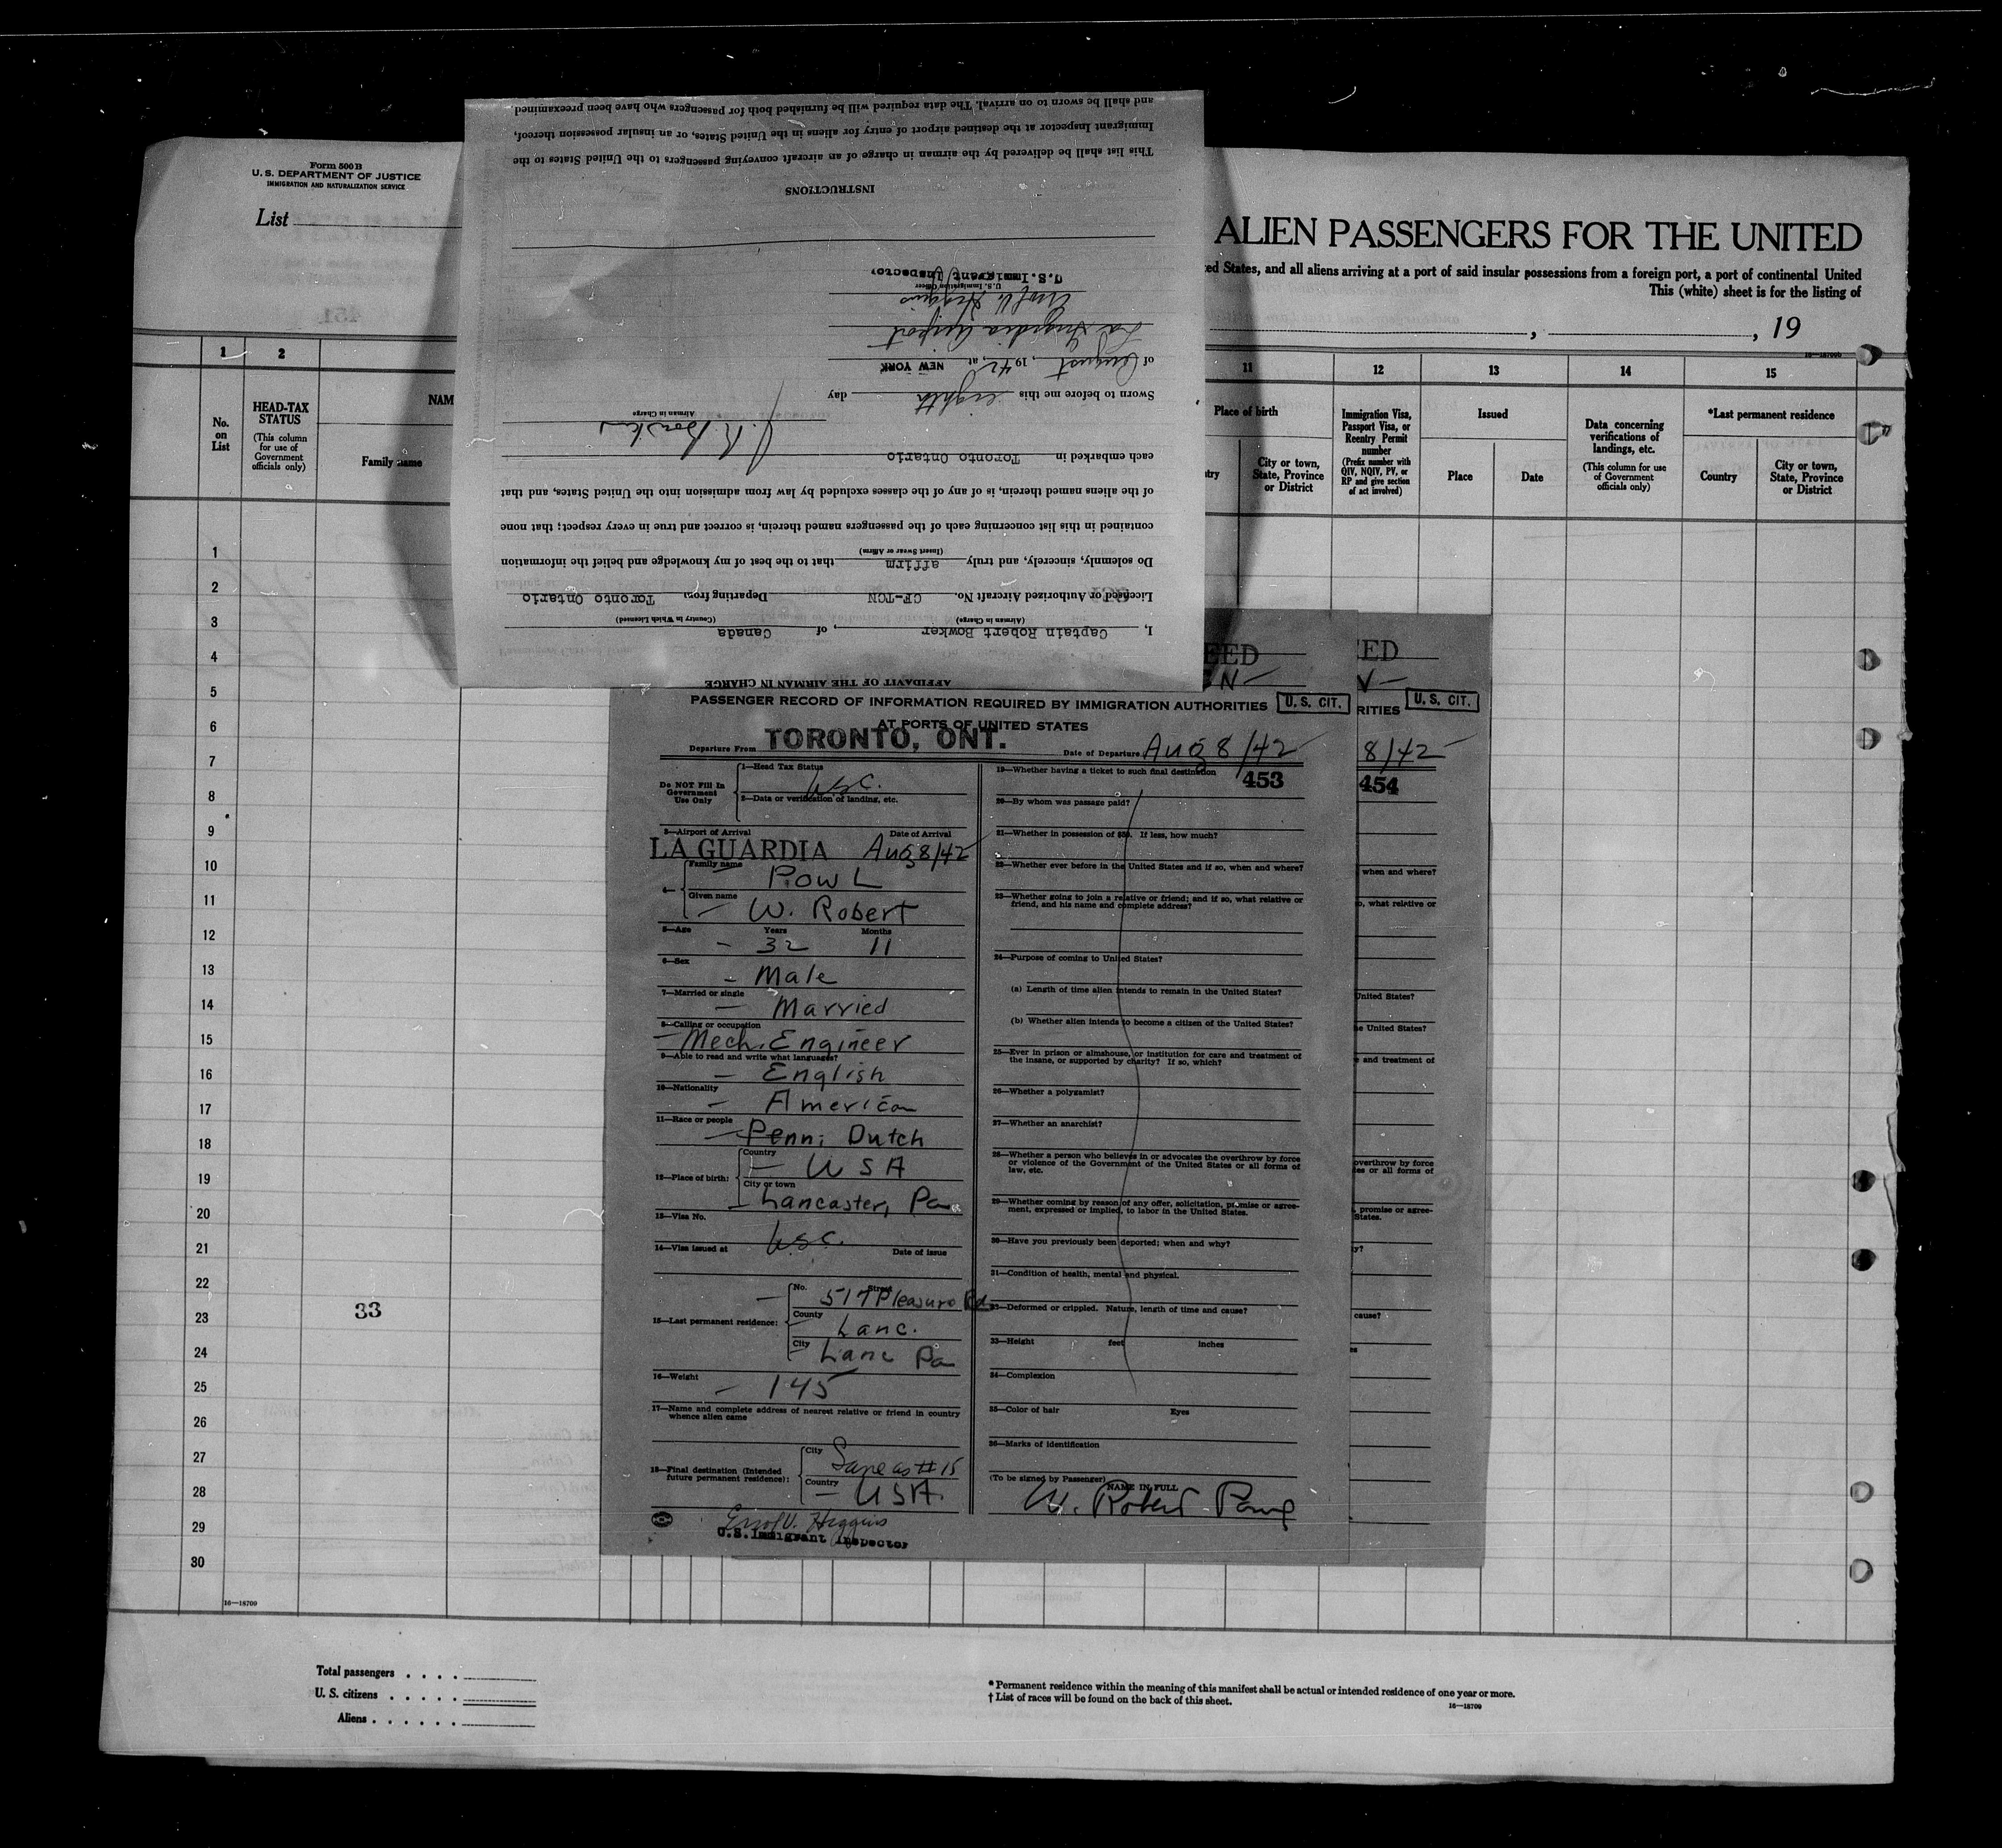 Form 500 B
U. S. DEPARTMENT OF JUSTICE
IMMIGRATION AND NATURALIZATION SERVICE
List
ALIEN PASSENGERS FOR THE UNITED
ed States, and all aliens arriving at a port of said insular possessions from a foreign port, a port of continental United
This (white) sheet is for the listing of
, , 19
16—18700b
1 2 11 12 13 14 15
No. on List
HEAD-TAX STATUS
(This column for use of Government officials only)
NAM
Family name
Place of birth
try
City or town, State, Province or District
Immigration Visa, Passport Visa, or Reentry Permit number
(Prefix number with QIV, NQIV, PV, or RP and give section of act involved)
Issued
Place
Date
Data concerning verifications of landings, etc.
(This column for use of Government officials only)
*Last permanent residence
Country
City or town, State, Province or District
1
2
3
4
5
6
7
8
9
10
11
12
13
14
15
16
17
18
19
20
21
22
23
24
25
26
27
28
29
30
33
16—18700
Total passengers . . . .
U. S. citizens . . . . .
Aliens . . . . . .
*Permanent residence within the meaning of this manifest shall be actual or intended residence of one year or more.
† List of races will be found on the back of this sheet.
16—18700
AFFIDAVIT OF THE AIRMAN IN CHARGE
I, Captain Robert Bowker, of Canada
(Airman in Charge) (Country in Which Licensed)
Licensed or Authorized Aircraft No. CF-TCN Departing from Toronto Ontario
Do solemnly, sincerely, and truly affirm that to the best of my knowledge and belief the information
(Insert Swear or Affirm)
contained in this list concerning each of the passengers named therein, is correct and true in every respect; that none
of the aliens named therein, is of any of the classes excluded by law from admission into the United States, and that
each embarked in Toronto Ontario
J. R. Bowker
Airman in Charge
Sworn to before me this eighth day
of August, 1942, at NEW YORK
La Guardia Airport
Errol V. Higgins
U.S. Immigration Officer
U.S. Immigrant Inspector
INSTRUCTIONS
This list shall be delivered by the airman in charge of an aircraft conveying passengers to the United States to the
Immigrant Inspector at the destined airport of entry for aliens in the United States, or an insular possession thereof,
and shall be sworn to on arrival. The data required will be furnished both for passengers who have been preexamined
EED
N—
PASSENGER RECORD OF INFORMATION REQUIRED BY IMMIGRATION AUTHORITIES
U. S. CIT.
AT PORTS OF UNITED STATES
Departure From TORONTO, ONT.
Date of Departure Aug 8/42
453
Do NOT Fill In Government Use Only
1—Head Tax Status
USC.
2—Data or verification of landing, etc.
3—Airport of Arrival Date of Arrival
LA GUARDIA Aug 8/42
4—
Family name
Powl
Given name
— W. Robert
5—Age Years Months
— 32 11
6—Sex
— Male
7—Married or single
— Married
8—Calling or occupation
— Mech. Engineer
9—Able to read and write what languages?
— English
10—Nationality
— American
11—Race or people
— Penn. Dutch
12—Place of birth:
Country
— USA
City or town
— Lancaster, Pa.
13—Visa No.
USC.
14—Visa issued at Date of issue
15—Last permanent residence:
No. Street
— 517 Pleasure Rd.
County
Lanc.
City
— Lanc Pa
16—Weight
— 145
17—Name and complete address of nearest relative or friend in country whence alien came
18—Final destination (Intended future permanent residence):
City
Same as #15
Country
— USA.
Errol V. Higgins
U.S. Immigrant Inspector
19—Whether having a ticket to such final destination
20—By whom was passage paid?
21—Whether in possession of $50. If less, how much?
22—Whether ever before in the United States and if so, when and where?
23—Whether going to join a relative or friend; and if so, what relative or
friend, and his name and complete address?
24—Purpose of coming to United States?
(a) Length of time alien intends to remain in the United States?
(b) Whether alien intends to become a citizen of the United States?
25—Ever in prison or almshouse, or institution for care and treatment of
the insane, or supported by charity? If so, which?
26—Whether a polygamist?
27—Whether an anarchist?
28—Whether a person who believes in or advocates the overthrow by force
or violence of the Government of the United States or all forms of
law, etc.
29—Whether coming by reason of any offer, solicitation, promise or agree-
ment, expressed or implied, to labor in the United States.
30—Have you previously been deported; when and why?
31—Condition of health, mental and physical.
32—Deformed or crippled. Nature, length of time and cause?
33—Height feet inches
34—Complexion
35—Color of hair Eyes
36—Marks of identification
(To be signed by Passenger)
NAME IN FULL
W. Robert Powl
ED
V—
RITIES
U. S. CIT.
8/42
454
when and where?
o, what relative or
United States?
e United States?
e and treatment of
overthrow by force
es or all forms of
, promise or agree-
States.
y?
cause?
es